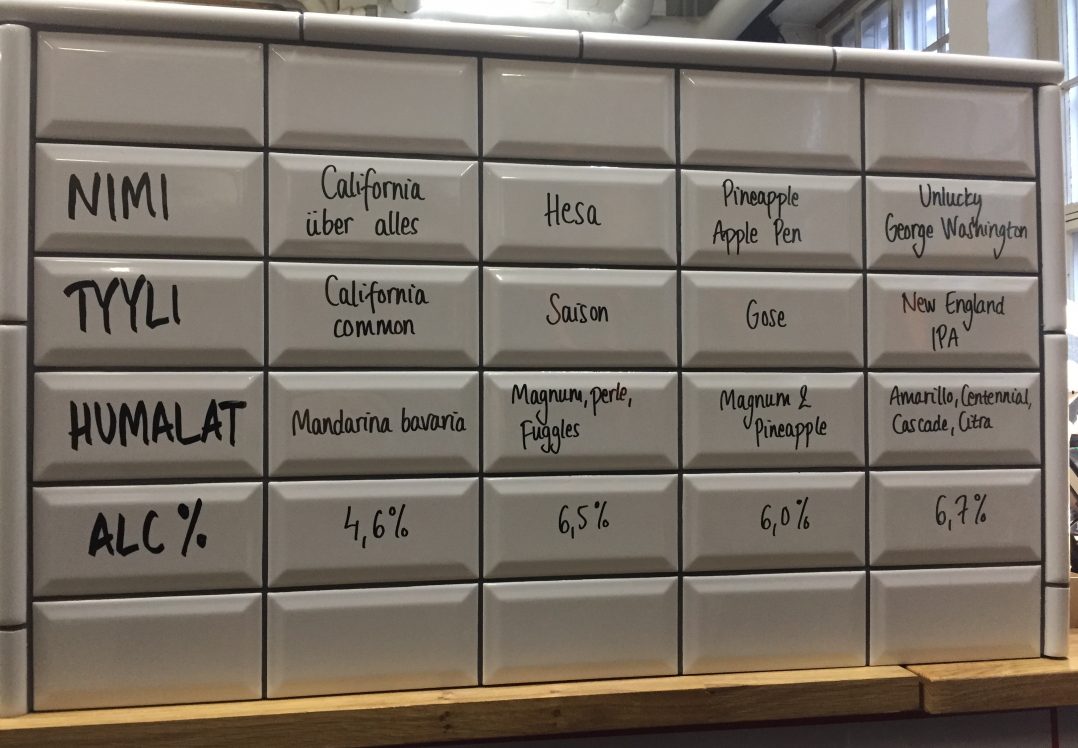 NIMI
California
über alles
Hesa
Pineapple
Apple Pen
Unlucky
George Washington
TYYLI
California
common
Saison
Gose
New England
IPA
HUMALAT
Mandarina bavaria
Magnum, perle,
Fuggles
Magnum &
Pineapple
Amarillo, Centennial,
Cascade, Citra
ALC %
4,6%
6,5%
6,0%
6,7%